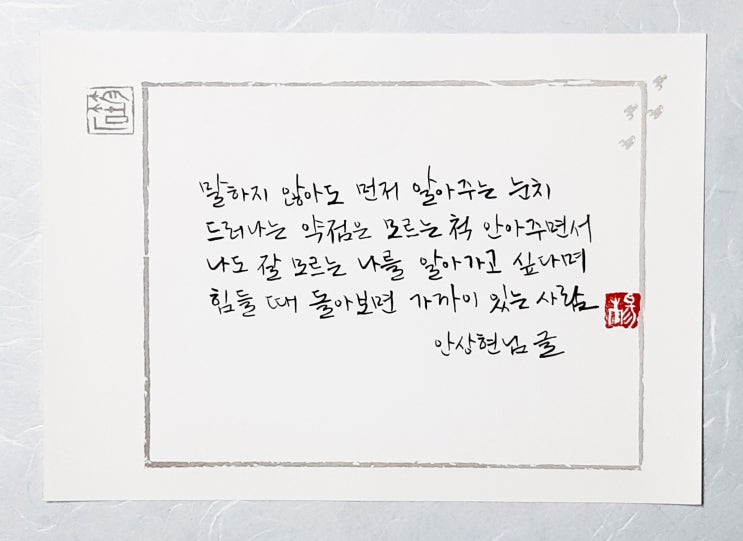 말하지 않아도 먼저 알아주는 눈치
드러나는 약점은 모르는 척 안아주면서
나도 잘 모르는 나를 알아가고 싶다며
힘들 때 돌아보면 가까이 있는 사람
안상현님 글